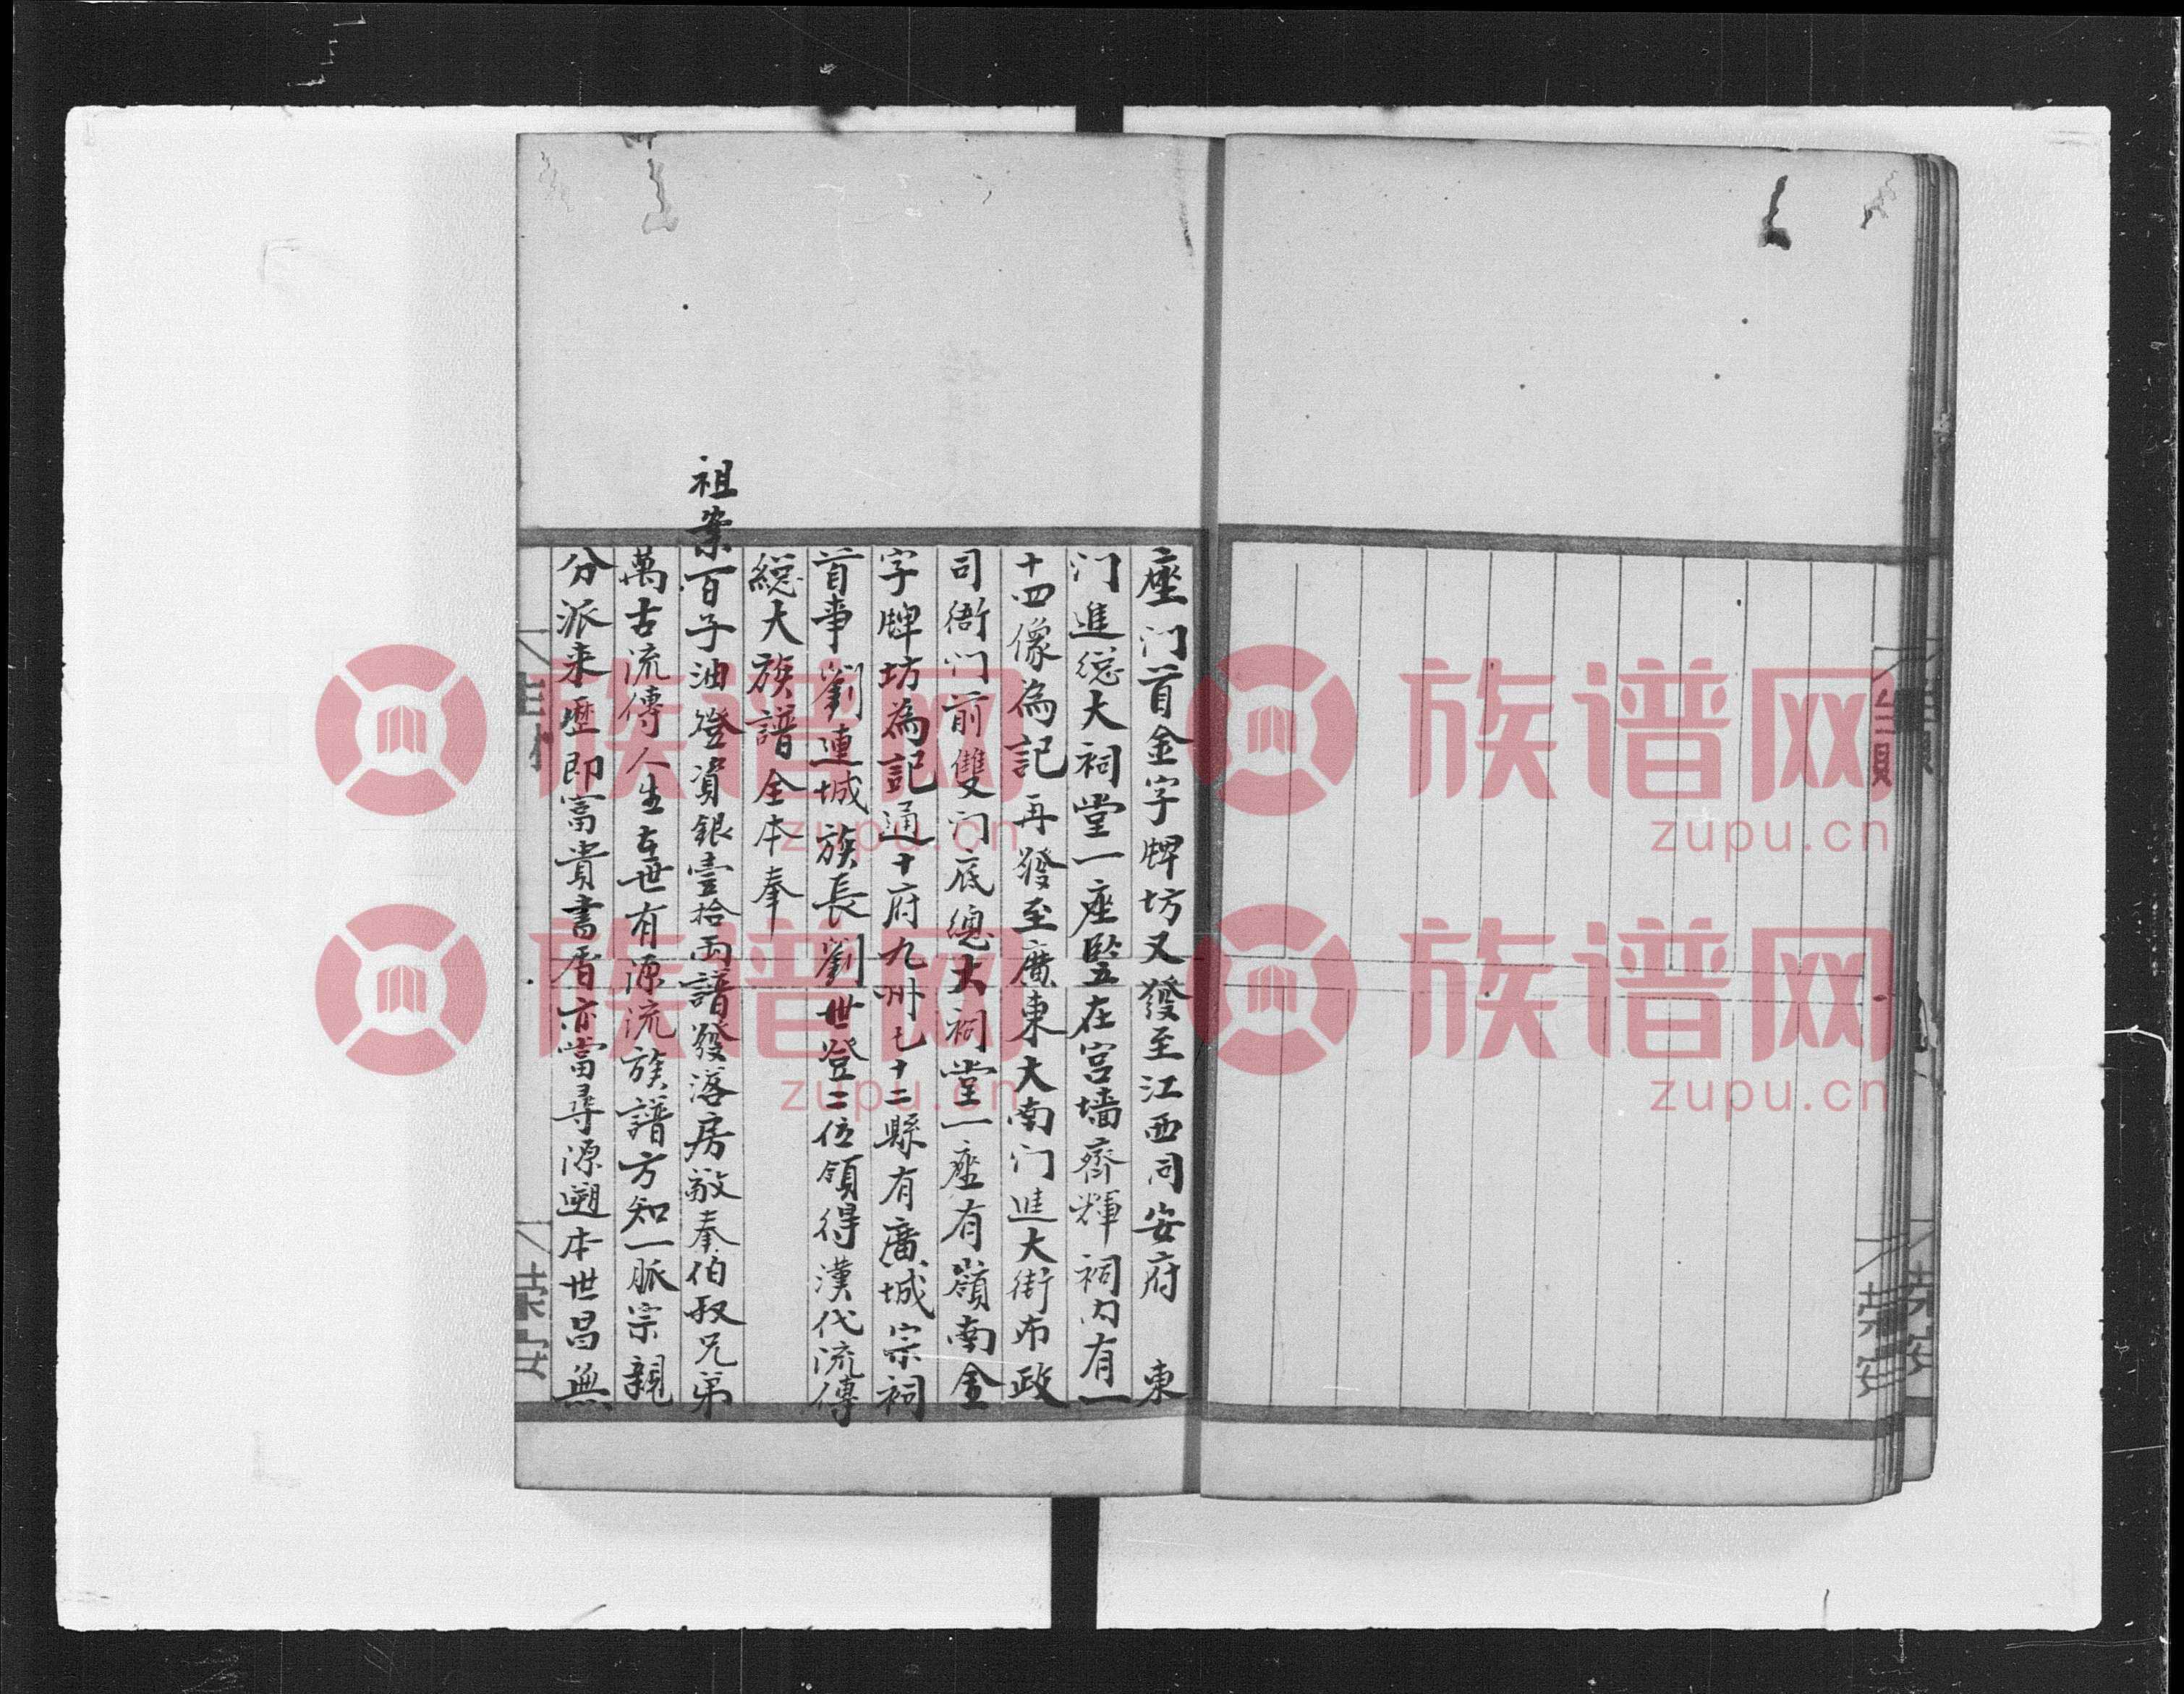 座门首金字牌坊又發至江西同安府　東
门進總大祠堂一座豎在宫墙齊輝祠内有一
十四像為記再發至廣東大南门進大街布政
司衙门前雙门底總大祠堂一座有嶺南金
字牌坊為記通十府九州七十二縣有廣城宗祠
首事劉連城族長劉世登二位領得漢代流傳
總大族譜全本奉
祖案百子油燈資銀壹拾両譜發落房敬奉伯叔兄弟
萬古流傳人生在世有源流族譜方知一脈宗親
分派来歷即富貴書香亦當尋源遡本世昌無
榮安
榮安
榮安
族谱网
zupu.cn
族谱网
zupu.cn
族谱网
zupu.cn
族谱网
zupu.cn